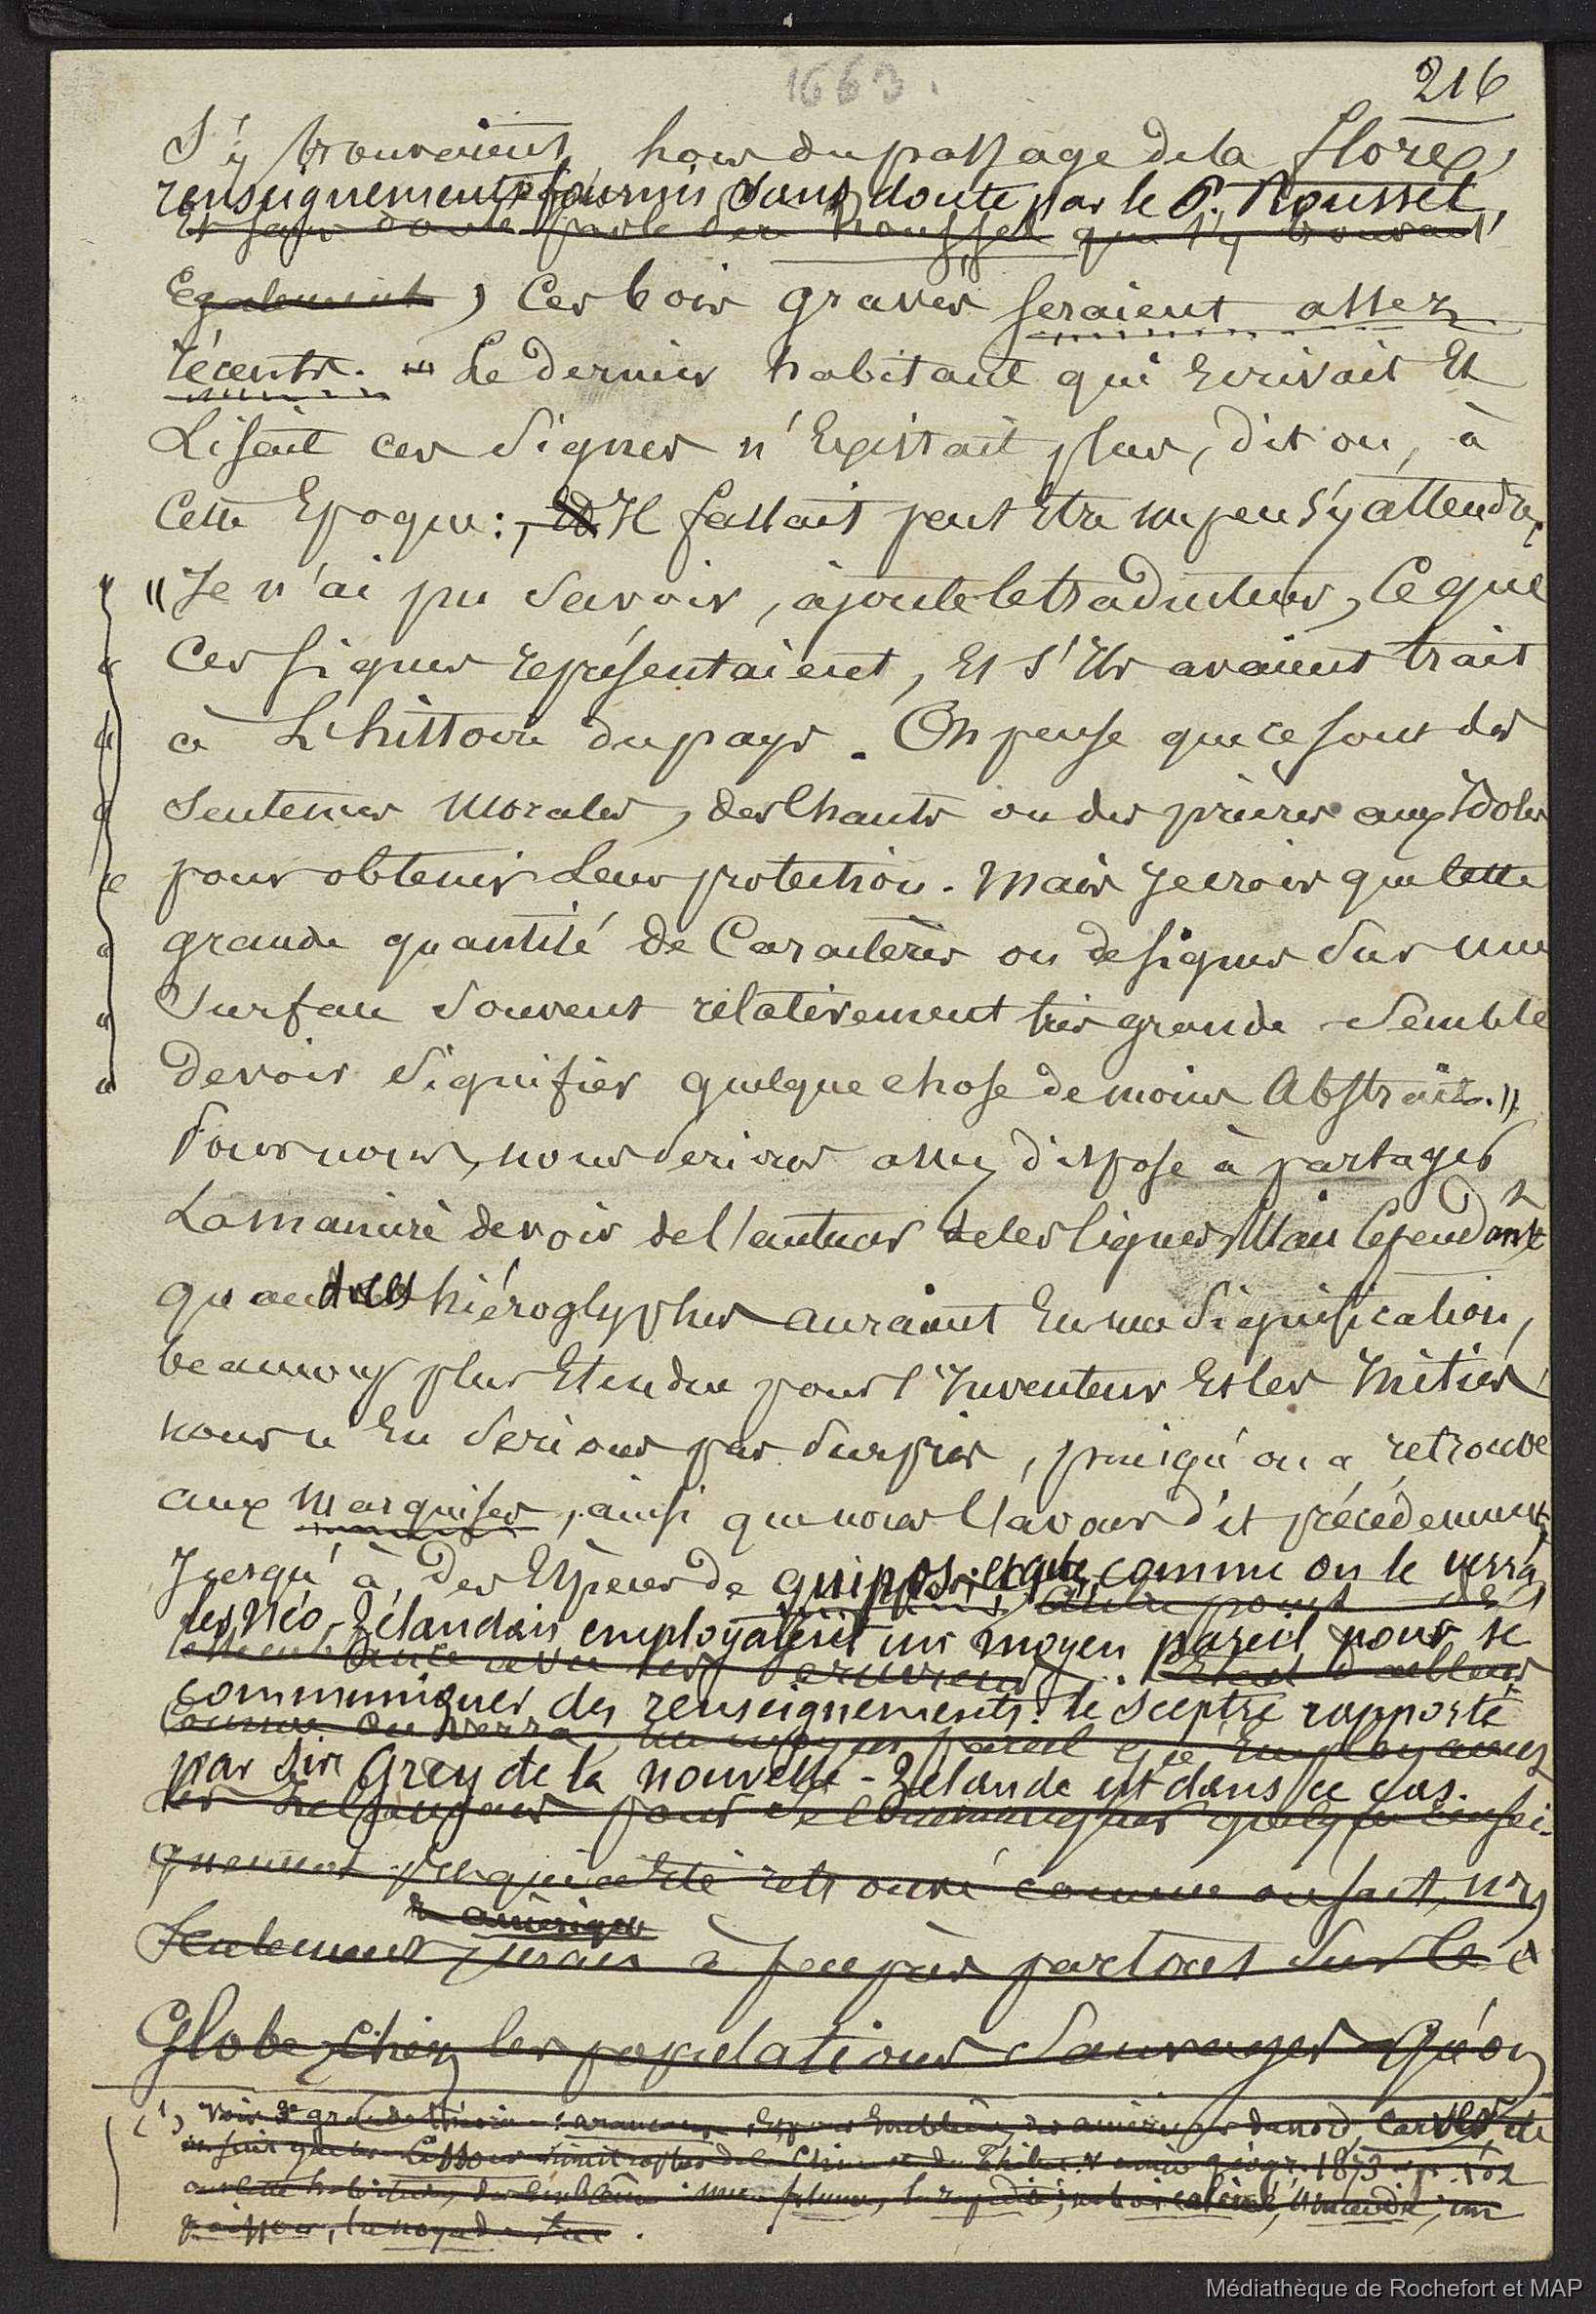 1663.
216
S'y trouvaient, hors du passage de la Flore,
renseignements fournis sans doute par le P. Roussel,
et sans doute par le Père Roussel qui s'y trouvait
Egalement, Ces bois gravés seraient assez
récents. Le dernier habitant qui Ecrivait Et
Lisait ces Signes n'Existait plus, dit on, à
Cette Epoque: Il fallait peut Etre un peu s'y attendre.
"Je n'ai pu savoir, ajoute le traducteur, Ce que
Ces signes représentaient, Et s'Ils avaient trait
à L'histoire du pays. On pense que ce sont des
Sentences Morales, des Chants ou des prières aux Idoles
pour obtenir Leur protection. Mais Je crois que Cette
grande quantité de Caractères ou de signes Sur une
Surface Souvent relativement très grande Semble
Devoir Signifier quelque chose de moins Abstrait."
Pour nous, nous serions assez disposé à partager
La manière de voir de l'auteur de ces lignes Mais Cependant
quand ces hiéroglyphes auraient Eu une Signification,
beaucoup plus Etendue pour l'Inventeur Et les Initiés
nous n'En Serions pas Surpris, puisqu'on a retrouvé
aux Marquises, ainsi que nous l'avons dit précédemment,
Jusqu'à Des Espèces de quippos; et que, comme on le verra,
les Néo-Zélandais employaient un moyen pareil pour se
communiquer des renseignements: le sceptre rapporté
Comme on verra, un moyen pareil qu'Employaient
par Sir Grey de la nouvelle-Zélande est dans ce cas.
gnement qui a Eté retrouvé comme on sait, non
Seulement mais à peu près partout Sur le
en amérique
Globe, chez les populations Sauvages qu'on
(1)
1873 p.